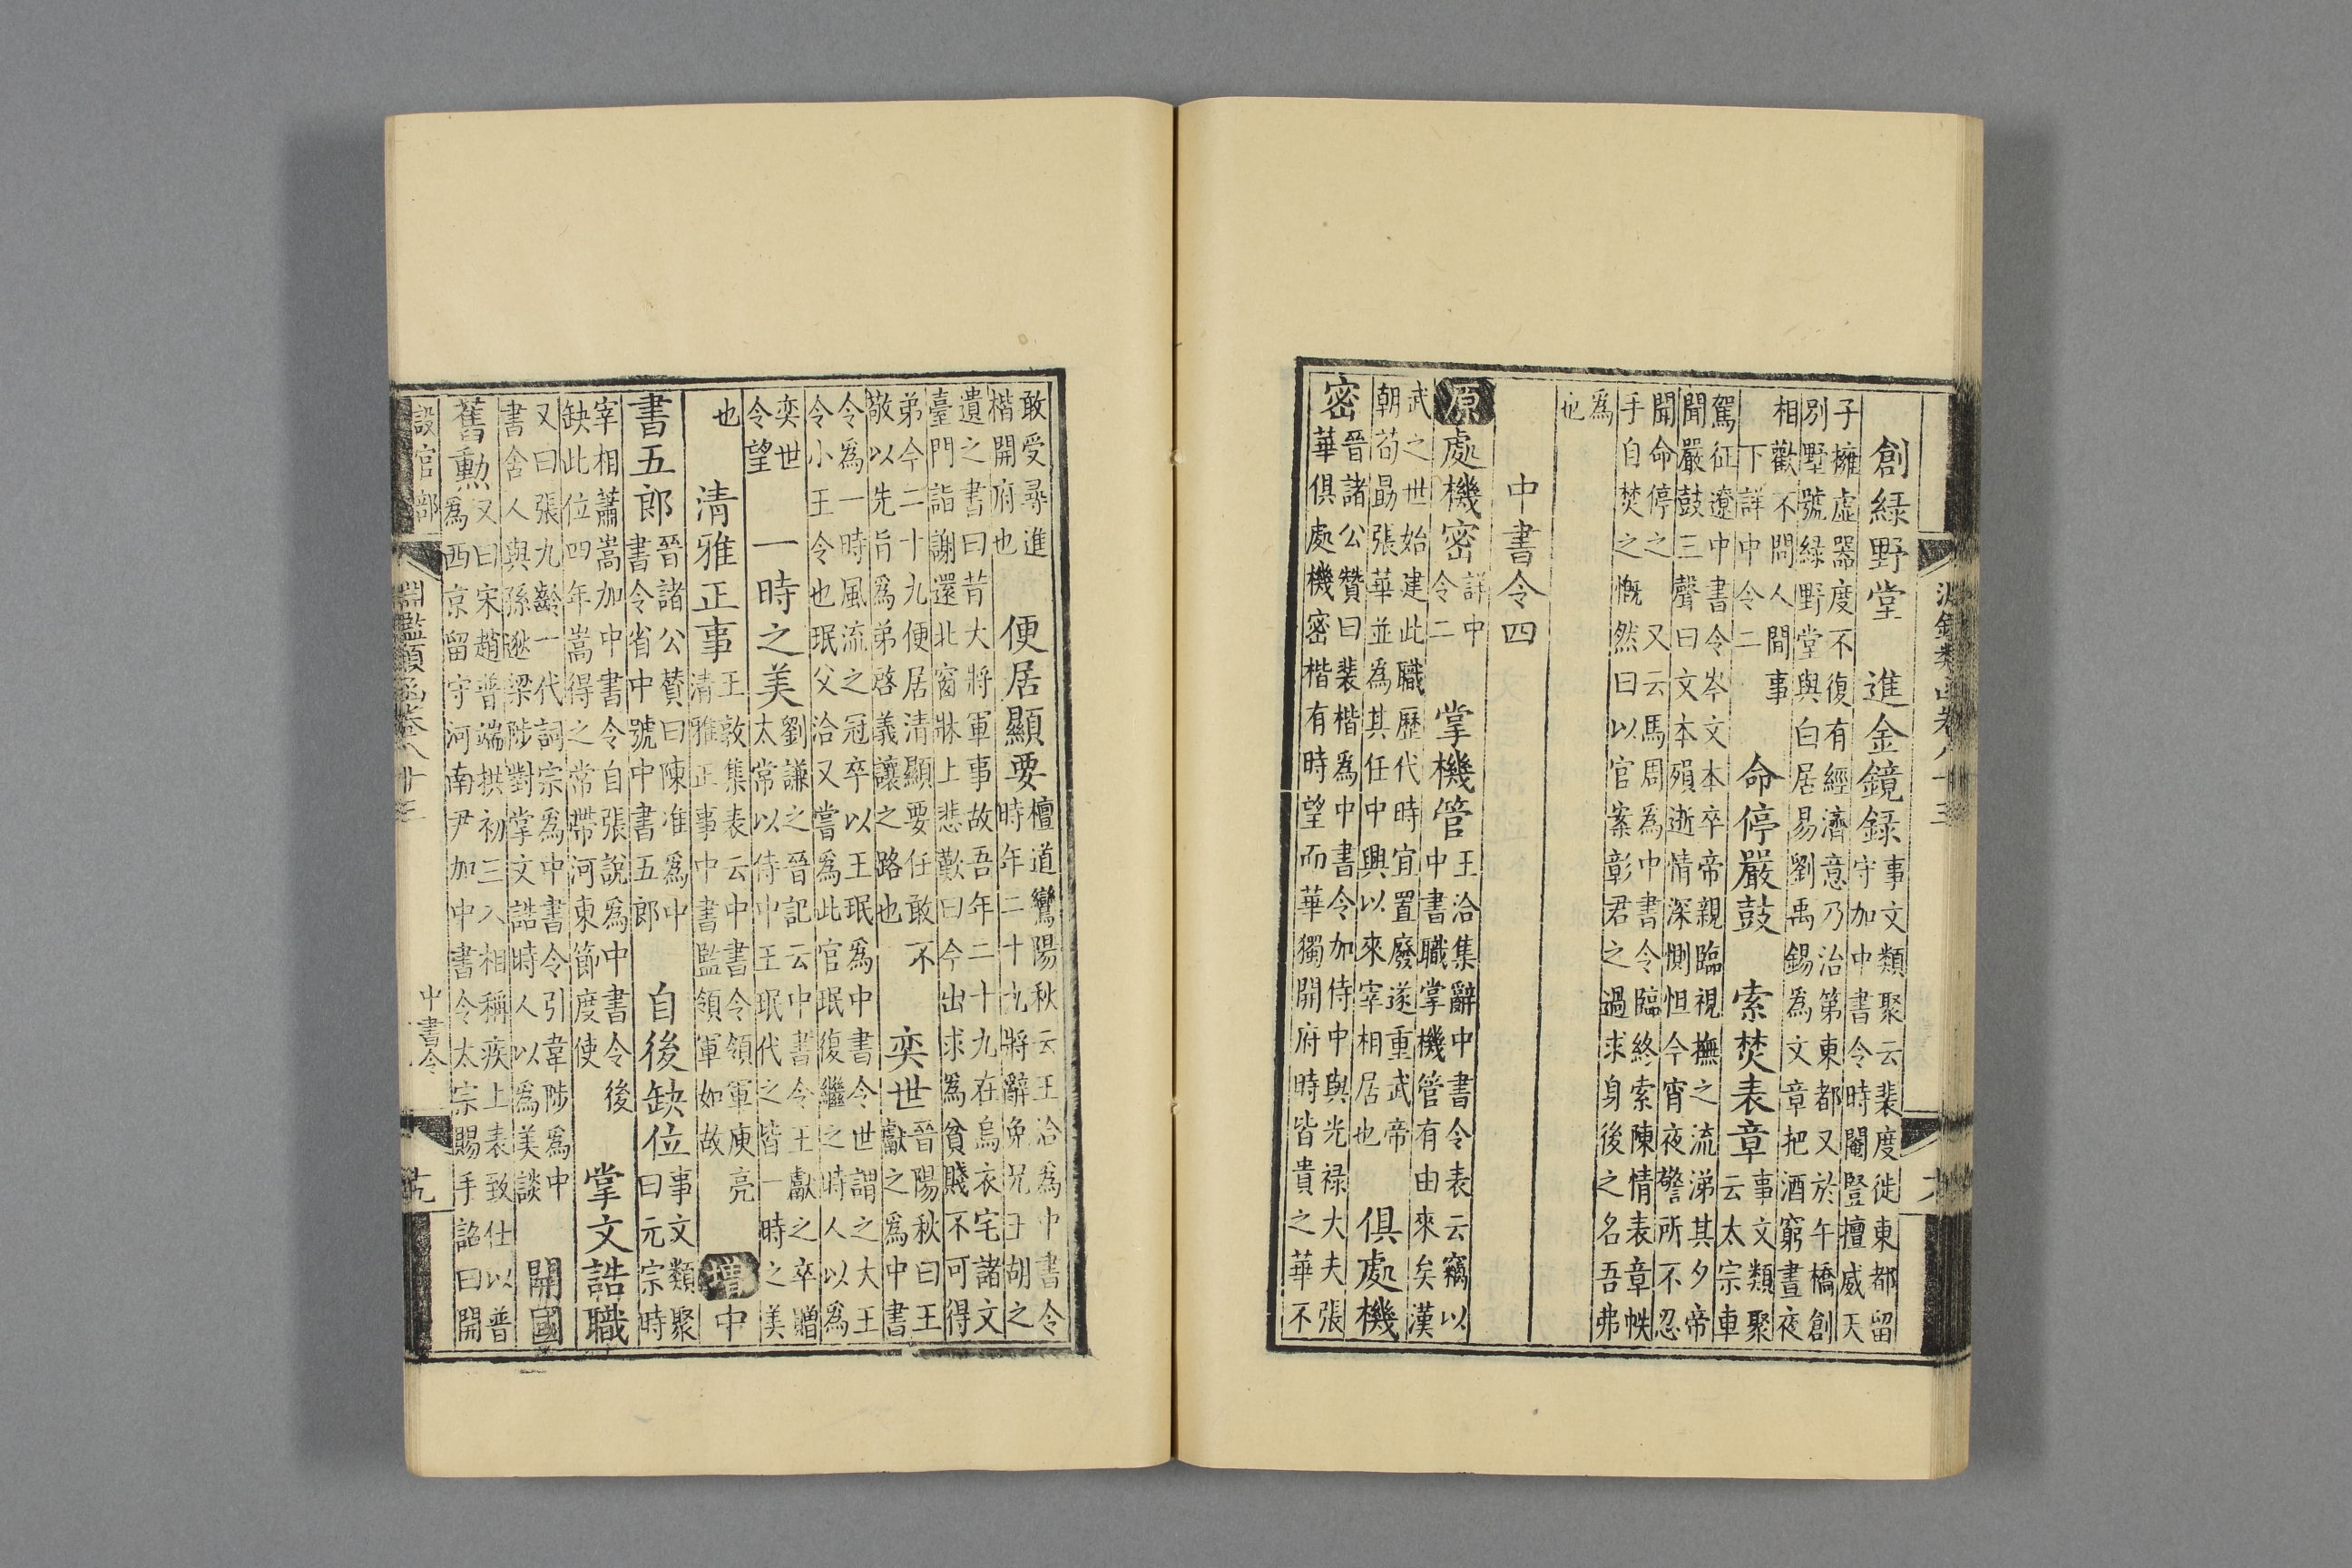 創綠野堂　進金鏡錄　事文類聚云裴度徙東都留
守加中書令時閹豎擅威天
子擁虛器度不復有經濟意乃治第東都又於午橋創
別墅號綠野堂與白居易劉禹錫為文章把酒窮晝夜
相歡不問人間事
下詳中令二
命停嚴鼓　索焚表章　事文類聚
云太宗車
駕征遼中書令岑文本卒帝親臨視撫之流涕其夕帝
聞嚴鼓三聲曰文本殞逝情深惻怛今宵夜警所不忍
聞命停之　又云馬周為中書令臨終索陳情表章帙
手自焚之慨然曰以官案彰君之過求身後之名吾弗
為
也
中書令四
原　處機密　詳中
令二
掌機管　王洽集辭中書令表云竊以
中書職掌機管有由來矣漢
武之世始建此職歷代時宜置廢遂重武帝
朝荀勗張華並為其任中興以來宰相居也
俱處機
密　晉諸公贊曰裴楷為中書令加侍中與光祿大夫張
華俱處機密楷有時望而華獨開府時皆貴之華不
敢受尋進
楷開府也
便居顯要　檀道鸞陽秋云王洽為中書令
時年二十九將辭免兄王胡之
遺之書曰昔大將軍事故吾年二十九在烏衣宅諸文
臺門詣謝還北窗牀上悲歎曰今出求為貧賤不可得
弟今二十九便居清顯要任敢不
敬以先旨為弟啓義讓之路也
奕世　晉陽秋曰王
獻之為中書
令為一時風流之冠卒以王珉為中書令世謂之大王
令小王令也珉父洽又嘗為此官珉復繼之時人以為
奕世
令望
一時之美　劉謙之晉記云中書令王獻之卒贈
太常以侍中王珉代之皆一時之美
也　清雅正事　王敦集表云中書令領軍庾亮
清雅正事中書監領軍如故
增　中
書五郎　晉諸公贊曰陳准為中
書令省中號中書五郎
自後缺位　事文類聚
曰元宗時
宰相蕭嵩加中書令自張說為中書令後
缺此位四年嵩得之常帶河東節度使
掌文誥職
又曰張九齡一代詞宗為中書令引韋陟為中
書舍人與孫逖梁陟對掌文誥時人以為美談
開國
舊勳　又曰宋趙普端拱初三入相稱疾上表致仕以普
為西京留守河南尹加中書令太宗賜手詔曰開
設官部　淵鑑類函卷八十三　中書令